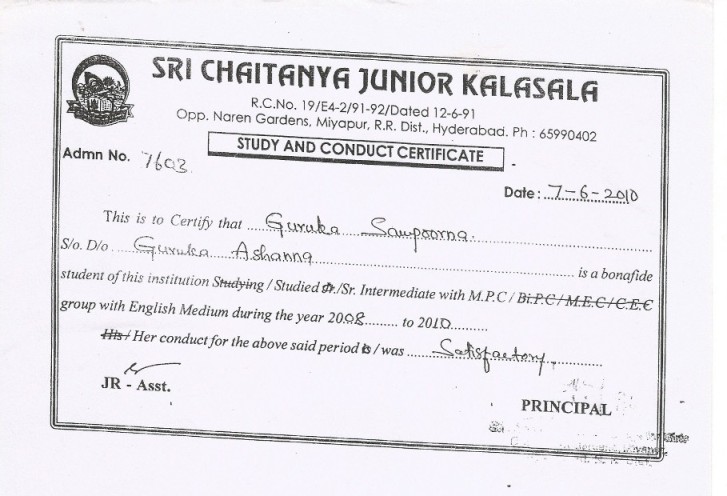 SRI CHAITANYA JUNIOR KALASALA
R.C.No. 19/E4-2/91-92/Dated 12-6-91
Opp. Naren Gardens, Miyapur, R.R. Dist., Hyderabad. Ph : 65990402
STUDY AND CONDUCT CERTIFICATE
Admn No. 7603
Date : 7-6-2010
This is to Certify that Guruka Sampoorna
S/o. D/o Guruka Ashanna is a bonafide
student of this institution Studying / Studied Jr./Sr. Intermediate with M.P.C / Bi.P.C / M.E.C / C.E.C
group with English Medium during the year 2008 to 2010
His / Her conduct for the above said period is / was Satisfactory,
JR - Asst.
PRINCIPAL